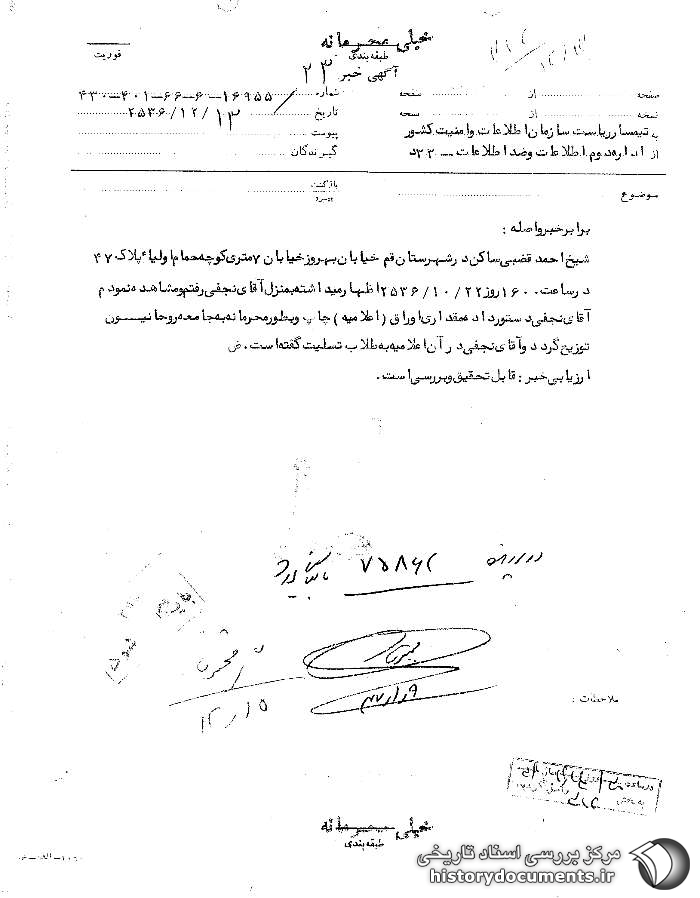 خیلی محرمانه
طبقه‌بندی
فوریت
آگهی خبر ۲۳
صفحه از صفحه
شماره ۱۶۹۵۵-۶-۶۶-۴۰۱-۴۳۰
نسخه از نسخه
تاریخ ۲۵۳۶/۱۲/۱۳
به تیمسار ریاست سازمان اطلاعات و امنیت کشور
پیوست
از اداره دوم اطلاعات و ضد اطلاعات — ۳۳۰د
گیرندگان
موضوع
بازگشت
پیرو
برابر خبر واصله :
شیخ احمد قضبی ساکن در شهرستان قم خیابان بهروز خیابان ۷ متری کوچه حمام اولیاء پلاک ۴۷
در ساعت ۱۶۰۰ روز ۲۵۳۶/۱۰/۲۲ اظهار میداشته بمنزل آقای نجفی رفتم و مشاهده نمودم
آقای نجفی دستور داد مقداری اوراق ( اعلامیه ) چاپ و بطور محرمانه به جامعه روحانیون
توزیع گردد و آقای نجفی در آن اعلامیه به طلاب تسلیت گفته است . ض
ارزیابی خبر : قابل تحقیق و بررسی است .
در پرونده ۷۵۸۶۲
۱۲/۱۵
ملاحظات :
خیلی محرمانه
طبقه‌بندی
مرکز بررسی اسناد تاریخی
historydocuments.ir